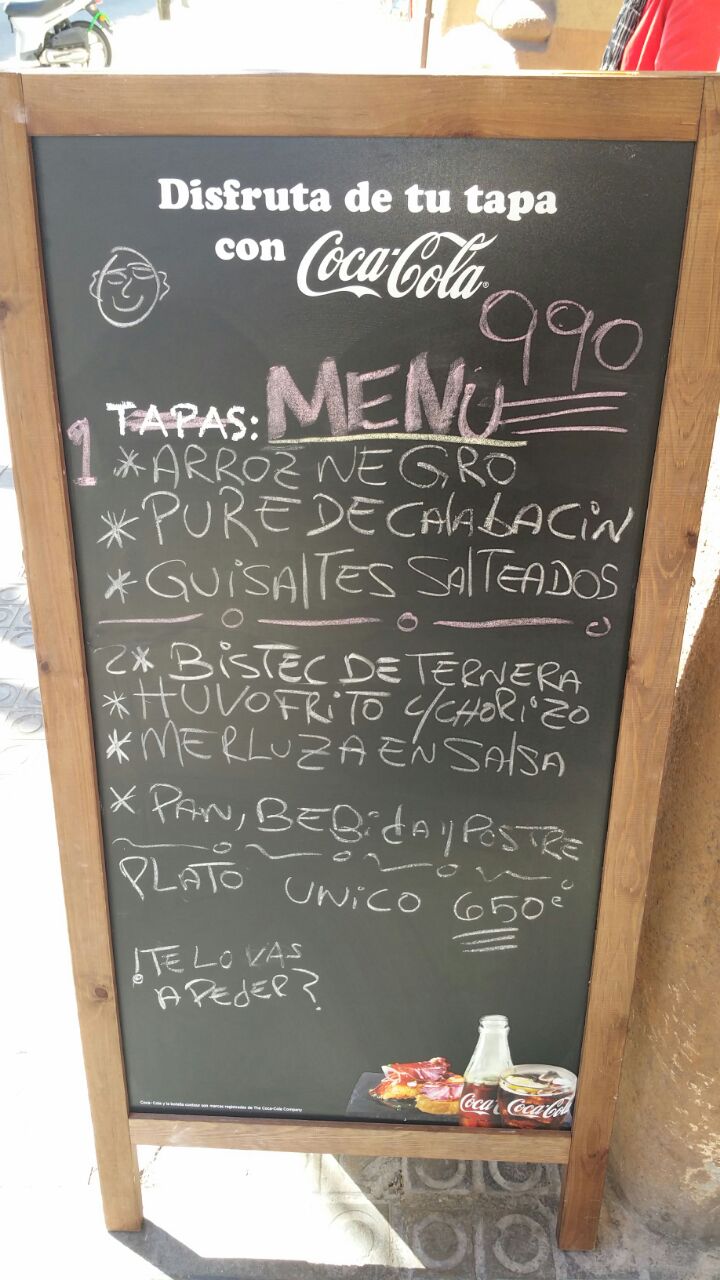 Disfruta de tu tapa
con Coca-Cola
990
TAPAS: MENÚ
1
* ARROZ NEGRO
* PURE DE CALABACIN
* GUISALTES SALTEADOS
2 * BISTEC DE TERNERA
* HUVO FRITO C/CHORIZO
* MERLUZA EN SALSA
* PAN, BEBIDA Y POSTRE
PLATO UNICO 650€
¡TE LO VAS
A PEDER?
Coca-Cola y la botella contour son marcas registradas de The Coca-Cola Company
Coca-Cola
Coca-Cola